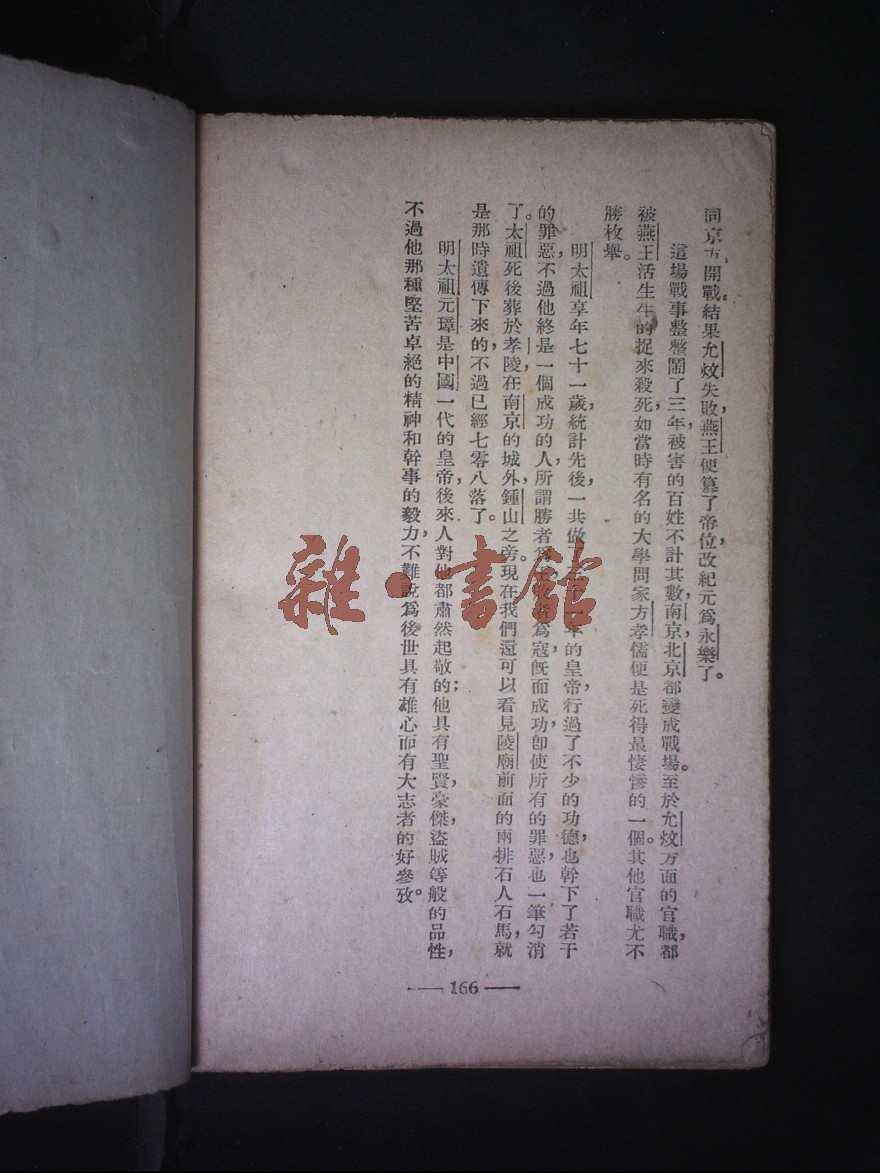 同京方開戰。結果允炆失敗，燕王便篡了帝位，改紀元爲永樂了。
這場戰事整整鬧了三年，被害的百姓不計其數，南京，北京都變成戰場。至於允炆方面的官職，都
被燕王活生生的捉來殺死，如當時有名的大學問家方孝儒便是死得最悽慘的一個。其他官職尤不
勝枚舉。
明太祖享年七十一歲，統計先後，一共做了三十一年的皇帝，行過了不少的功德，也幹下了若干
的罪惡，不過他終是一個成功的人，所謂勝者爲王敗者爲寇，旣而成功，卽使所有的罪惡，也一筆勾消
了。太祖死後葬於孝陵，在南京的城外，鍾山之旁。現在我們還可以看見陵廟前面的兩排石人石馬，就
是那時遺傳下來的，不過已經七零八落了。
明太祖元璋是中國一代的皇帝，後來人對他都肅然起敬的；他具有聖賢，豪傑，盜賊等般的品性，
不過他那種堅苦卓絕的精神和幹事的毅力，不難說爲後世具有雄心而有大志者的好參攷。
雜·書館
166